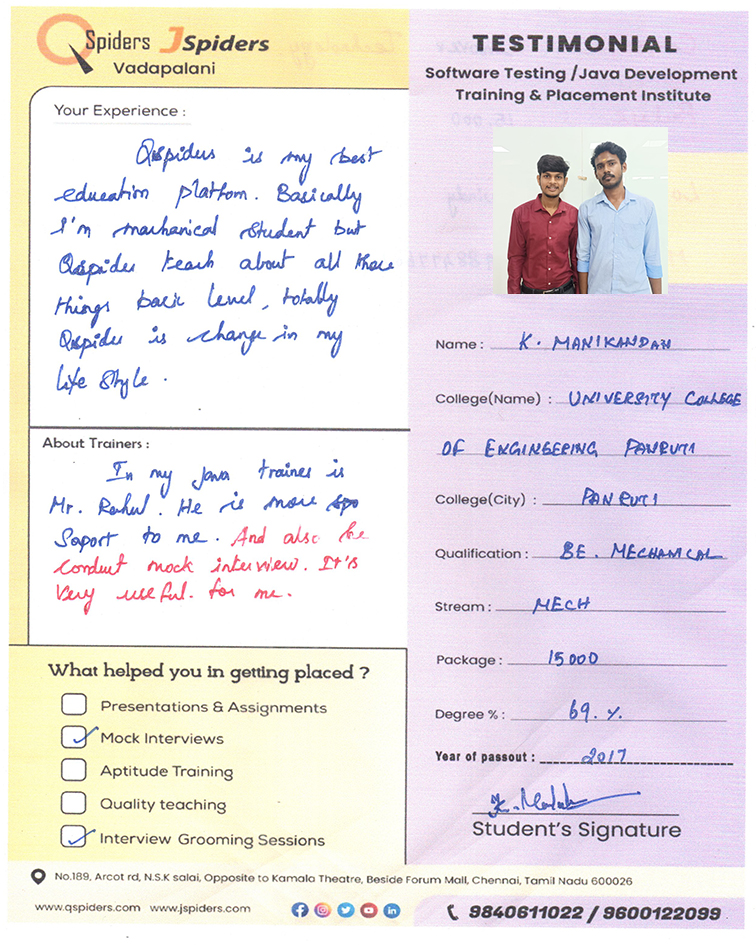 QSpiders JSpiders
Vadapalani
Your Experience :
Qspiders is my best
education platfom. Basically
I'm machanical student but
Qspider teach about all these
things basic level, totally
Qspider is change in my
life style.
About Trainers :
In my java trainer is
Mr. Rahul. He is more spo
Saport to me. And also he
conduct mock interview. It's
Very useful. for me.
What helped you in getting placed ?
Presentations & Assignments
Mock Interviews
Aptitude Training
Quality teaching
Interview Grooming Sessions
TESTIMONIAL
Software Testing /Java Development
Training & Placement Institute
Name : K. MANIKANDAN
College(Name) : UNIVERSITY COLLEGE
OF ENGINGERING PANRUTI
College(City) : PANRUTI
Qualification : BE. MECHANICAL
Stream : MECH
Package : 15000
Degree % : 69. %
Year of passout : 2017
Student's Signature
No.189, Arcot rd, N.S.K salai, Opposite to Kamala Theatre, Beside Forum Mall, Chennai, Tamil Nadu 600026
www.qspiders.com www.jspiders.com
9840611022 / 9600122099